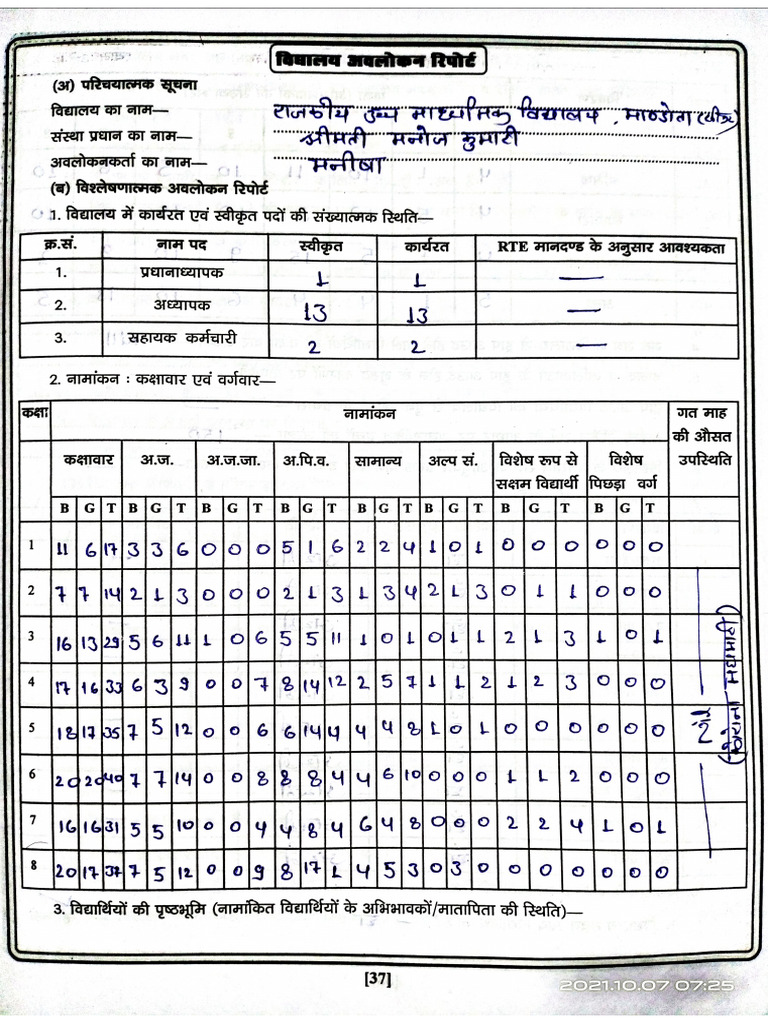 विद्यालय अवलोकन रिपोर्ट
(अ) परिचयात्मक सूचना
विद्यालय का नाम— राजकीय उच्च माध्यमिक विद्यालय,
संस्था प्रधान का नाम— श्रीमती मनोज कुमारी
अवलोकनकर्ता का नाम— मनीषा
(ब) विश्लेषणात्मक अवलोकन रिपोर्ट
1. विद्यालय में कार्यरत एवं स्वीकृत पदों की संख्यात्मक स्थिति—
क्र.सं. नाम पद स्वीकृत कार्यरत RTE मानदण्ड के अनुसार आवश्यकता
1. प्रधानाध्यापक 1 1 —
2. अध्यापक 13 13 —
3. सहायक कर्मचारी 2 2 —
2. नामांकन : कक्षावार एवं वर्गवार—
कक्षा नामांकन गत माह
की औसत
उपस्थिति
कक्षावार अ.ज. अ.ज.जा. अ.पि.व. सामान्य अल्प सं. विशेष रूप से विशेष
सक्षम विद्यार्थी पिछड़ा वर्ग
B G T B G T B G T B G T B G T B G T B G T B G T
1 11 6 17 3 3 6 0 0 0 5 1 6 2 2 4 1 0 1 0 0 0 0 0 0
2 7 7 14 2 1 3 0 0 0 2 1 3 1 3 4 2 1 3 0 1 1 0 0 0
3 16 13 29 5 6 11 1 0 6 5 5 11 1 0 1 0 1 1 2 1 3 1 0 1
4 17 16 33 6 3 9 0 0 7 8 14 12 2 5 7 1 1 2 1 2 3 0 0 0
5 18 17 35 7 5 12 0 0 6 6 14 4 4 4 8 1 0 1 0 0 0 0 0 0
6 20 20 40 7 7 14 0 0 8 8 8 4 4 6 10 0 0 0 1 1 2 0 0 0
7 16 16 31 5 5 10 0 0 4 4 8 4 6 4 8 0 0 0 2 2 4 1 0 1
8 20 17 37 7 5 12 0 0 9 8 17 1 4 5 3 0 3 0 0 0 0 0 0 0
(कोरोना महामारी)
3. विद्यार्थियों की पृष्ठभूमि (नामांकित विद्यार्थियों के अभिभावकों/मातापिता की स्थिति)—
[37]
2021.10.07 07:25